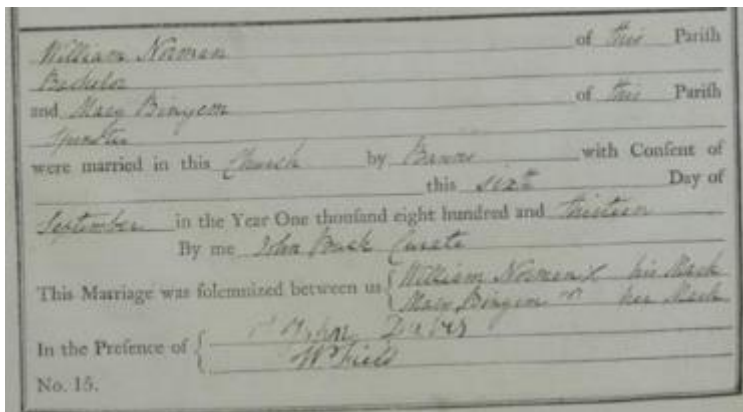 William Norman of this Pariſh
Bachelor
and Mary Binyem of this Pariſh
Spinster
were married in this Church by Banns with Conſent of
this sixth Day of
September in the Year One thouſand eight hundred and thirteen
By me John Curate
This Marriage was ſolemnized between us { William Norman X his Mark
Mary Binyem her Mark
In the Preſence of {
Wm Field
No. 15.